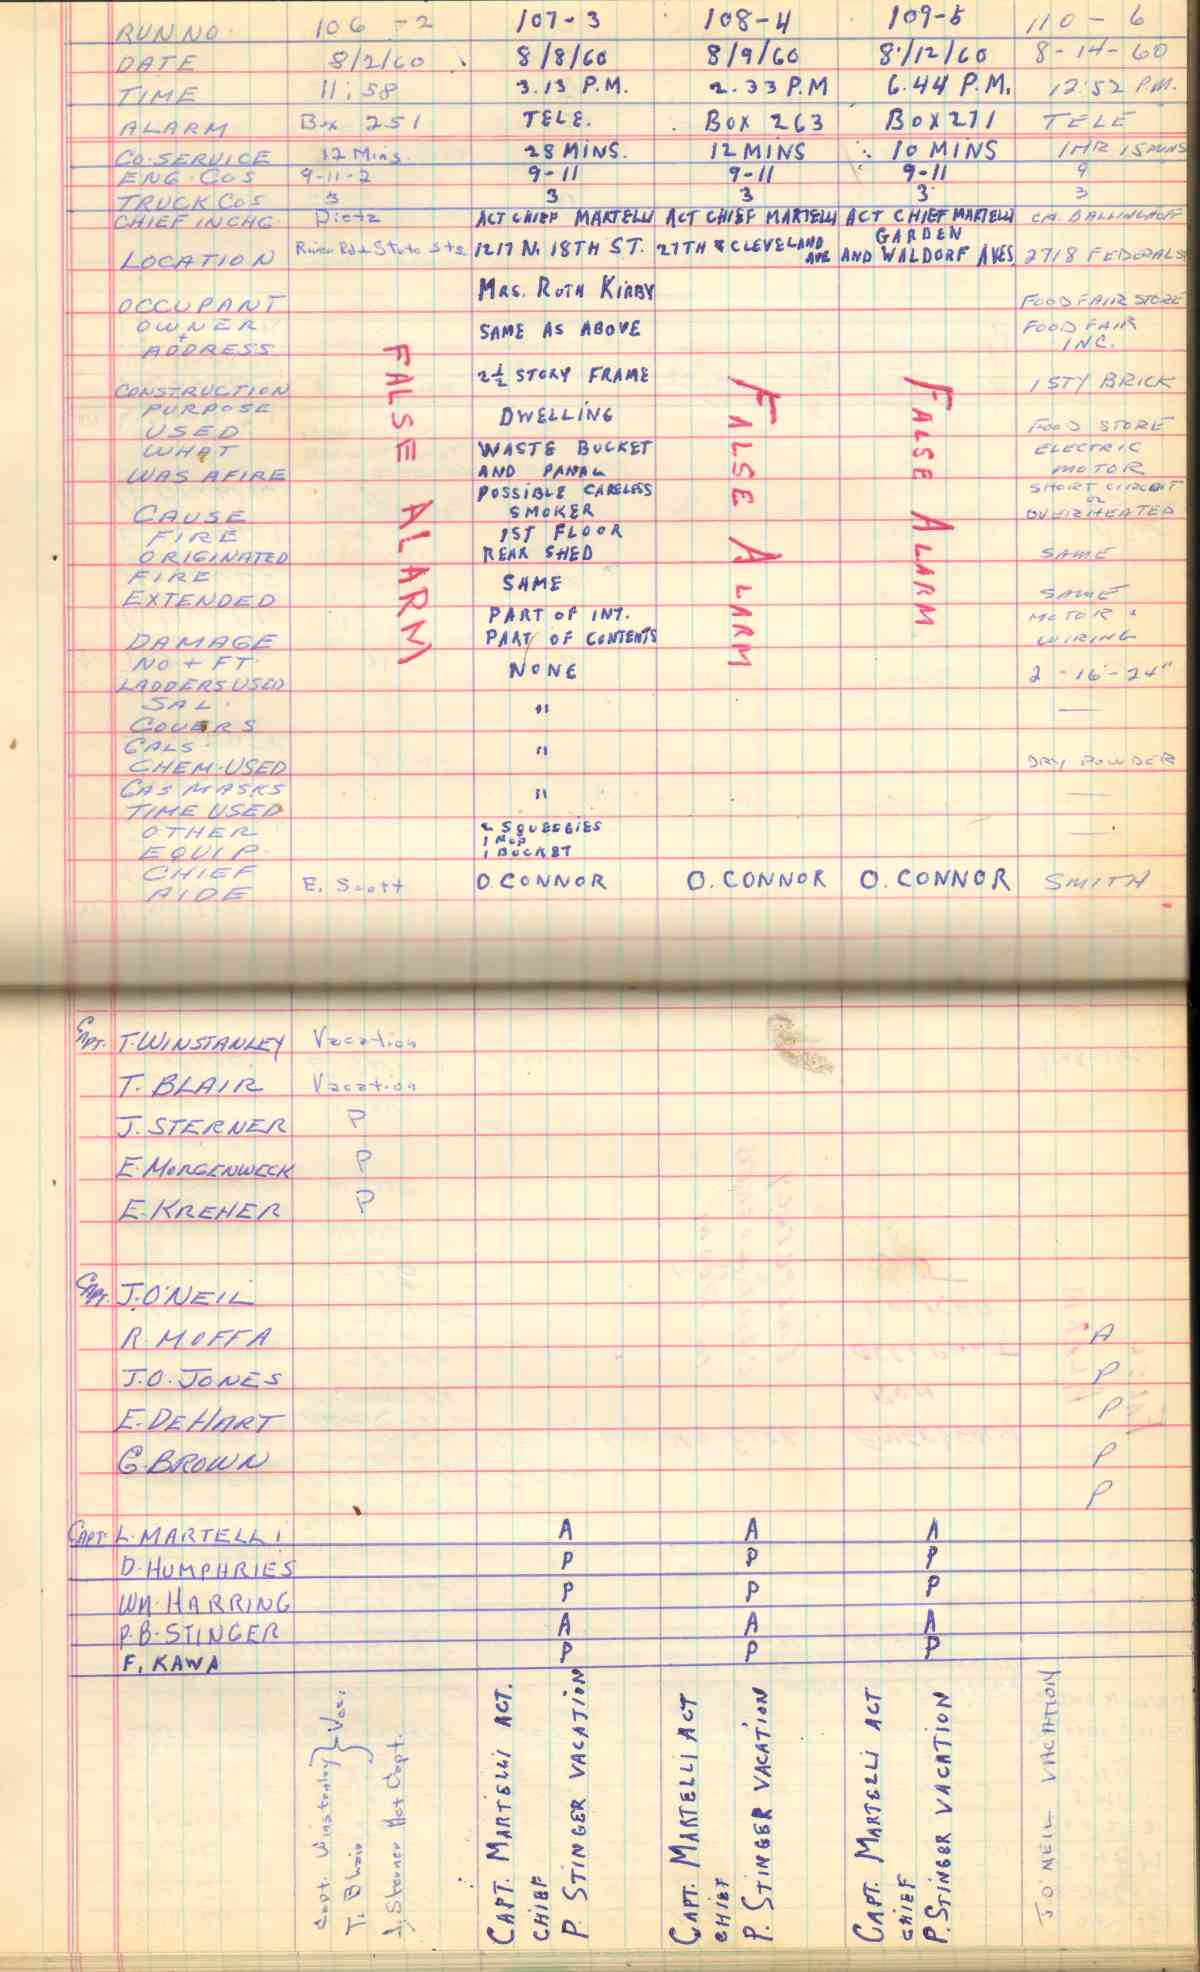 RUN NO. 106 - 2 107-3 108-4 109-5 110 - 6
DATE 8/2/60 8/8/60 8/9/60 8/12/60 8-14-60
TIME 11:58 3.13 P.M. 2.33 P.M 6.44 P.M. 12:52 P.M.
ALARM Box 251 TELE. BOX 263 BOX 271 TELE
CO. SERVICE 12 Mins. 28 MINS. 12 MINS 10 MINS 1 HR 15 MINS
ENG. COS 9-11-2 9-11 9-11 9-11 9
TRUCK COS 3 3 3 3 3
CHIEF IN CHG. Dietz ACT CHIEF MARTELLI ACT CHIEF MARTELLI ACT CHIEF MARTELLI
LOCATION River Rd & State Sts 1217 N. 18TH ST. 27TH & CLEVELAND AVE GARDEN AND WALDORF AVES. 2718 FEDERAL ST
OCCUPANT MRS. RUTH KIRBY FOOD FAIR STORE
OWNER + ADDRESS SAME AS ABOVE FOOD FAIR INC.
CONSTRUCTION 2½ STORY FRAME 1 STY BRICK
PURPOSE USED DWELLING FOOD STORE
WHAT WAS AFIRE WASTE BUCKET AND PANAL ELECTRIC MOTOR
CAUSE POSSIBLE CARELESS SMOKER SHORT CIRCUIT OR OVERHEATED
FIRE ORIGINATED 1ST FLOOR REAR SHED SAME
FIRE EXTENDED SAME SAME
DAMAGE PART OF INT. PART OF CONTENTS MOTOR & WIRING
NO + FT. LADDERS USED NONE 2 - 16'- 24"
SAL. COVERS "
GALS. CHEM. USED " DRY POWDER
GAS MASKS TIME USED "
OTHER EQUIP. 2 SQUEEGIES 1 MOP 1 BUCKET
CHIEF AIDE E. Scott O. CONNOR O. CONNOR O. CONNOR SMITH
FALSE ALARM
FALSE ALARM
FALSE ALARM
CAPT. T. WINSTANLEY Vacation
T. BLAIR Vacation
J. STERNER P
E. MORGENWECK P
E. KREHER P
CAPT. J. O'NEIL
R. MOFFA A
J.O. JONES P
E. DEHART P
G. BROWN P
P
CAPT. L. MARTELLI A A A
D. HUMPHRIES P P P
WM. HARRING P P P
P.B. STINGER A A A
F. KAWA P P P
Capt. Winstanley } Vac.
T. Blair
J. Sterner Act Capt.
CAPT. MARTELLI ACT.
CHIEF
P. STINGER VACATION
CAPT. MARTELLI ACT
CHIEF
P. STINGER VACATION
CAPT. MARTELLI ACT
CHIEF
P. STINGER VACATION
J. O'NEIL VACATION